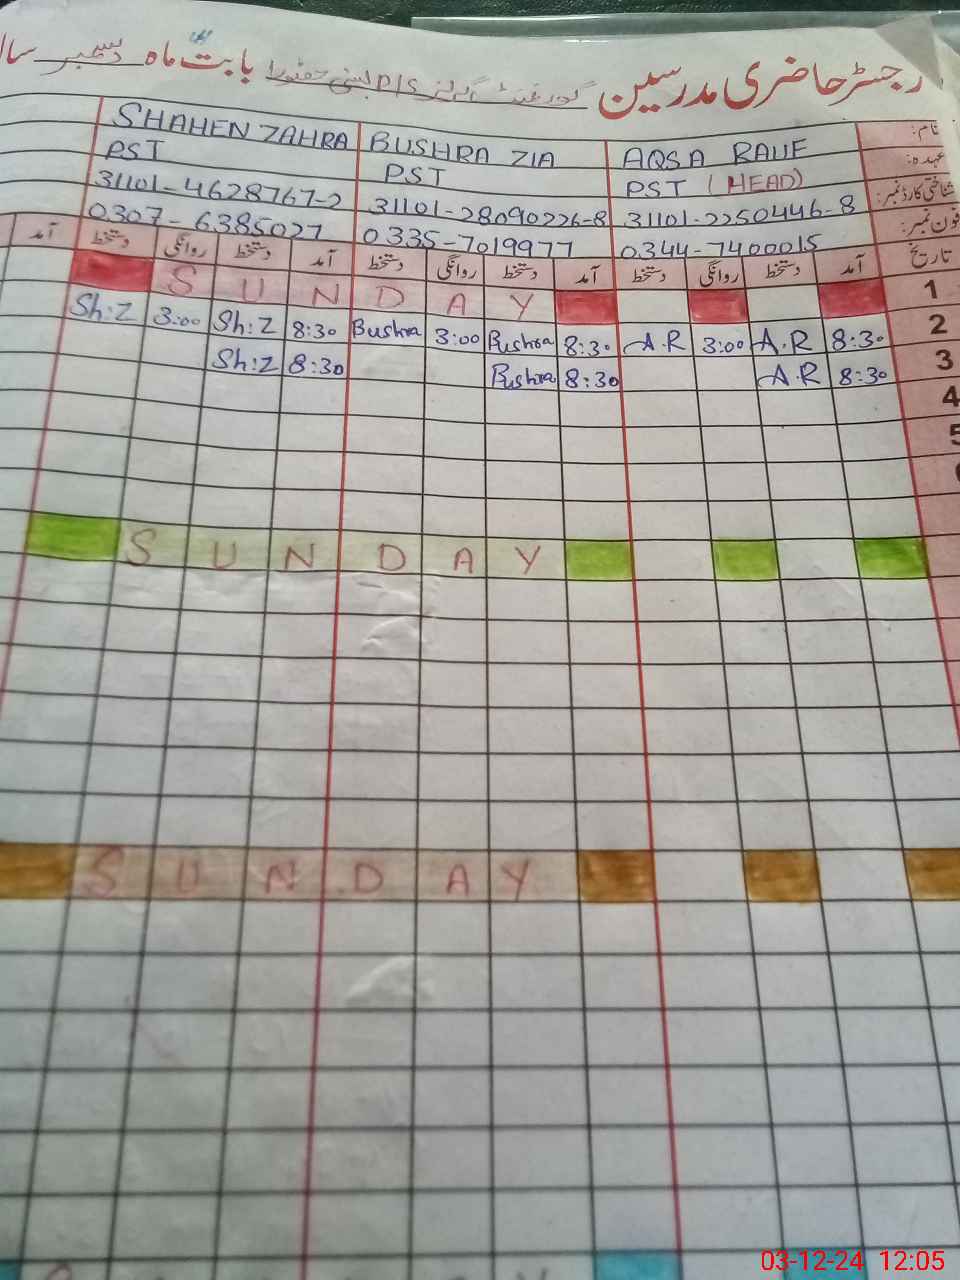 رجسٹر حاضری مدرسین گورنمنٹ گرلز P/S بستی بابت ماہ دسمبر سال
نام: AQSA RAUF BUSHRA ZIA SHAHEN ZAHRA
عہدہ: PST (HEAD) PST PST
شناختی کارڈ نمبر: 31101-2250446-8 31101-28090226-8 31101-4628767-2
فون نمبر: 0344-7400015 0335-7019977 0307-6385027
تاریخ آمد دستخط روانگی دستخط آمد دستخط روانگی دستخط آمد دستخط روانگی دستخط آمد
1 SUNDAY
2 8:30 A.R 3:00 A.R 8:30 Bushra 3:00 Bushra 8:30 Sh:Z 3:00 Sh:Z
3 8:30 A.R 8:30 Bushra 8:30 Sh:Z
4
5
SUNDAY
SUNDAY
03-12-24 12:05